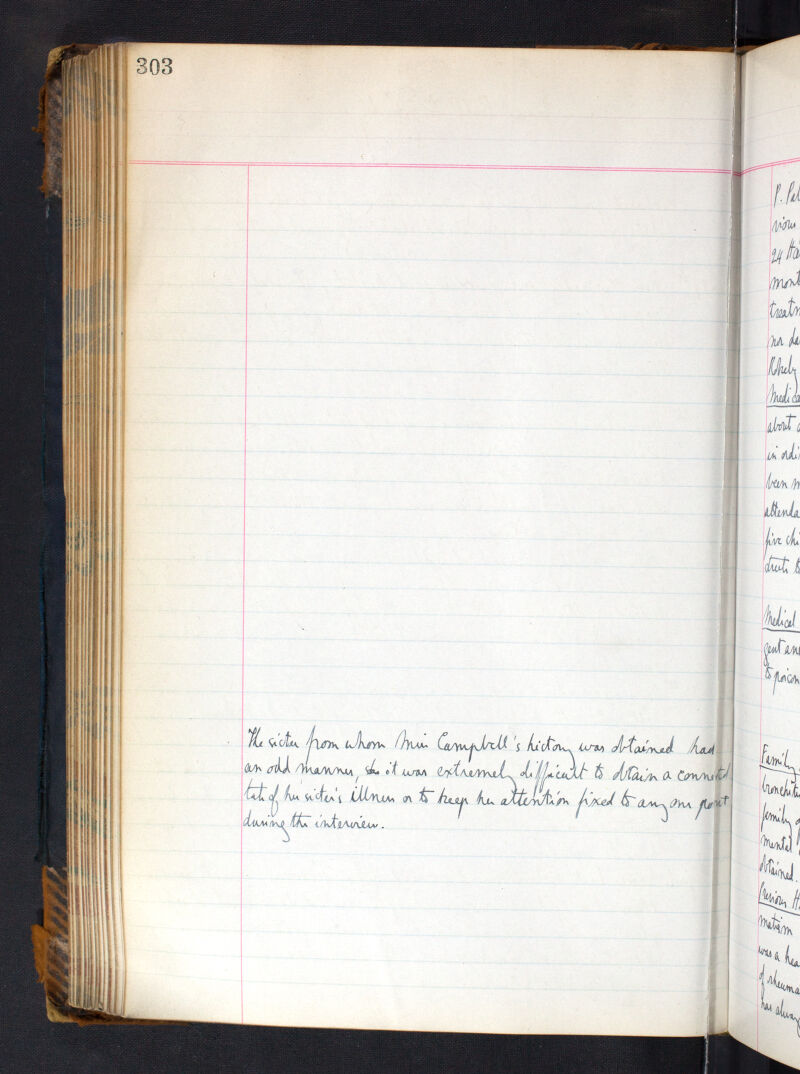 303
The sister from whom Miss Campbell's history was obtained had
an odd manner, it was extremely difficult to obtain a connected
tale of her sister's illness or to keep her attention fixed to any one point
during the interview.
P. Pal
vious
24 Ha
mont
treatm
nor da
Medica
about
in ordi
been m
attenda
five chi
Medical
gent and
to poison
Family
bronchitis
family
mental
obtained.
Previous H
matism
was a hea
of rheuma
has alway